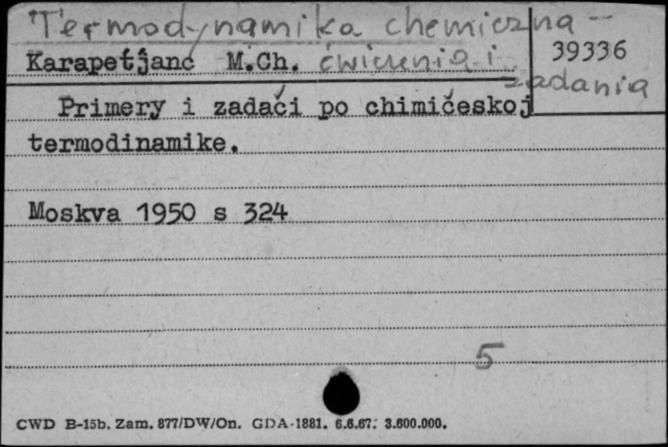 Termodynamika chemiczna -
Karapetjanc M.Ch. ćwiczenia i 39336
zadania
Primery i zadači po chimičeskoj
termodinamike.
Moskva 1950 s 324
5
CWD B-15b. Zam. 877/DW/On. GDA-1881. 6.6.67. 3.600.000.